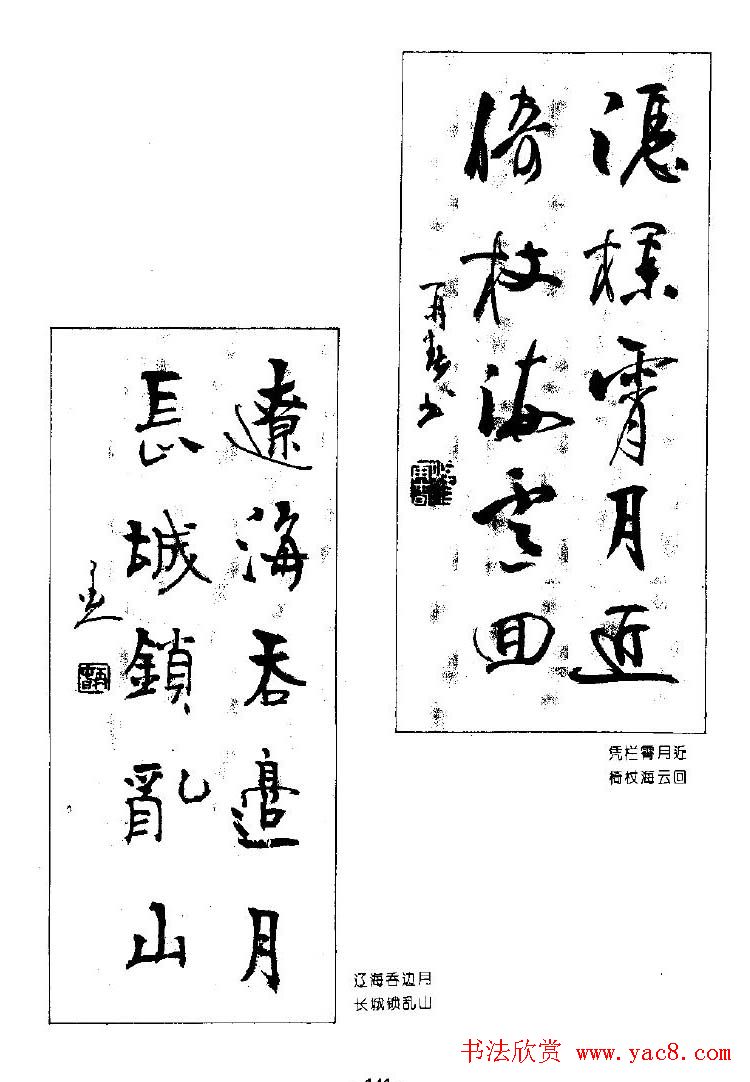 憑欄霄月近
倚杖海雲回
凭栏霄月近
倚杖海云回
遼海吞邊月
長城鎖亂山
辽海吞边月
长城锁乱山
书法欣赏 www.yac8.com